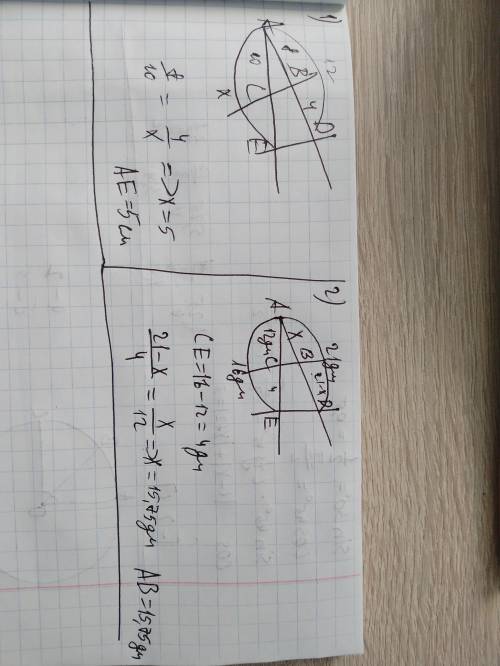 1)
12
A
8
B
4
D
10
C
E
x
8/10 = 4/x => x = 5
AE = 5 см
2)
A
x
B
21-x
D
21дм
12дм
C
4
E
16дм
CE = 16 - 12 = 4 дм
21-x/4 = x/12 => x = 15,75дм AB = 15,75дм